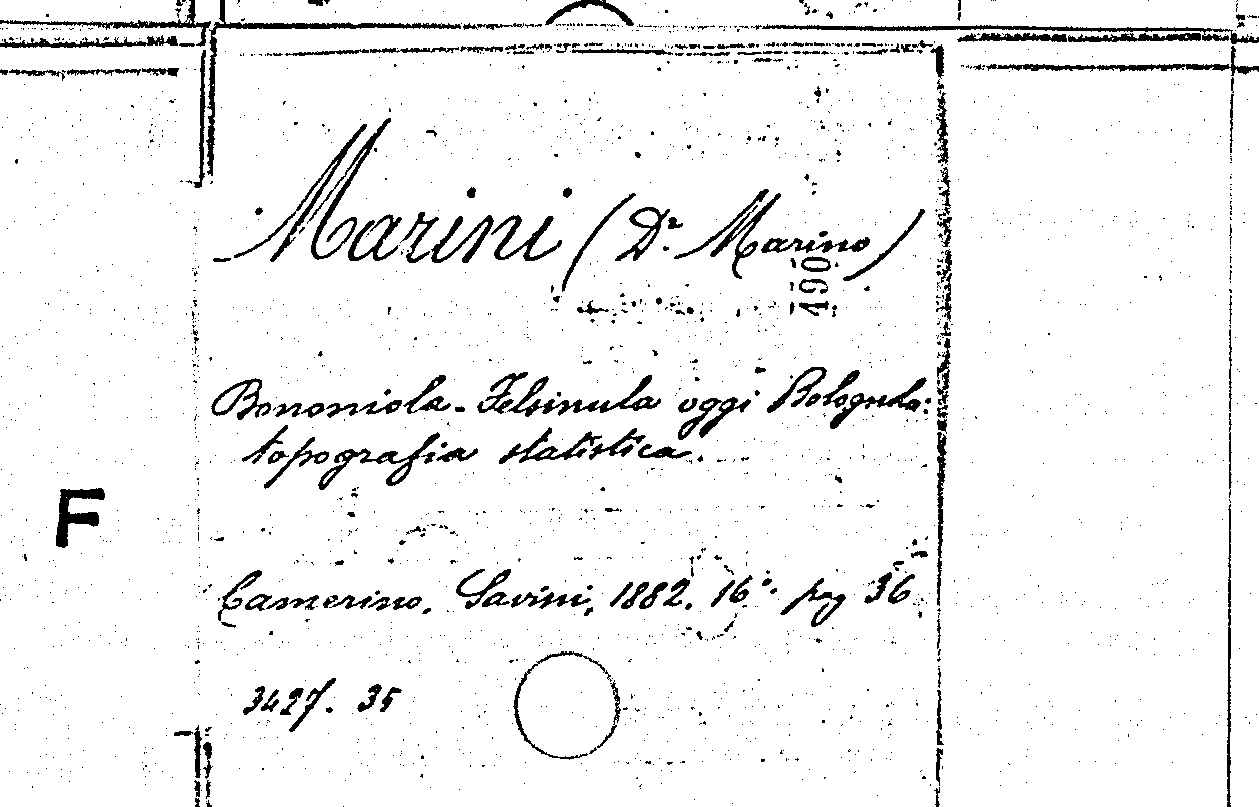 Marini (Dr. Marino)
490
Bononiola-Felsinula oggi Bolognola:
topografia statistica.
F
Camerino, Savini, 1882. 16°. pag 36
3427. 35